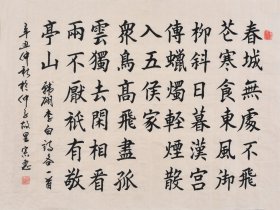 春城無處不飛
花寒食東風御
柳斜日暮漢宮
傳蠟燭輕煙散
入五侯家
眾鳥高飛盡孤
雲獨去閑相看
兩不厭衹有敬
亭山 韓翃李白詩各一首
辛丑仲秋於仲